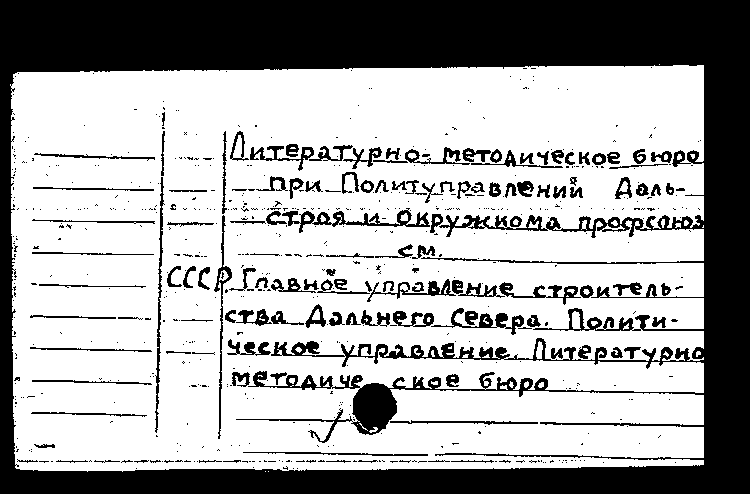 Литературно-методическое бюро
при Политуправлений Даль-
строя и Окружкома профсоюз
см.
СССР. Главное управление строитель-
ства Дальнего Севера. Полити-
ческое управление. Литературно
методическое бюро